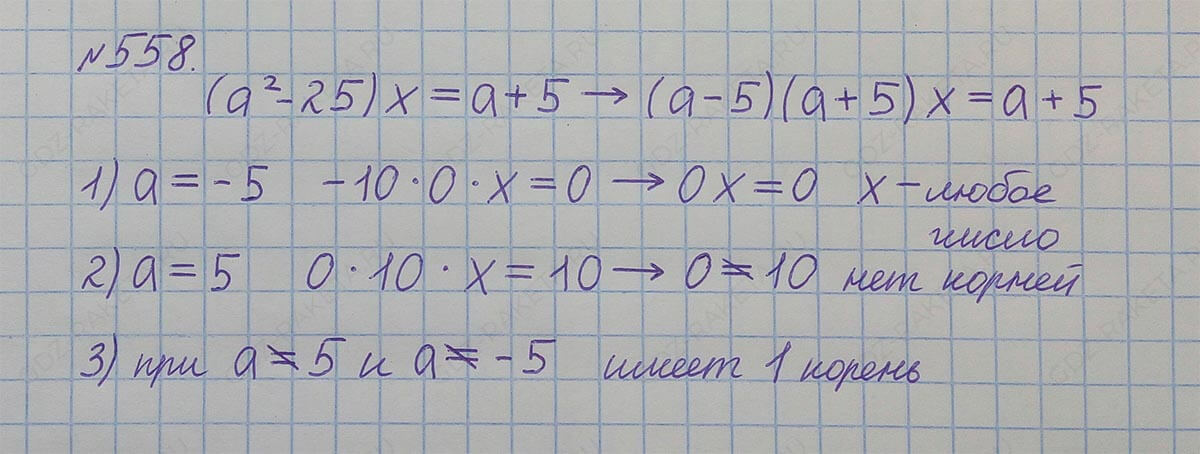 №558.
(a²-25)x=a+5→(a-5)(a+5)x=a+5
1) a=-5 -10·0·x=0→0x=0 x-любое
число
2) a=5 0·10·x=10→0≠10 нет корней
3) при a≠5 и a≠-5 имеет 1 корень